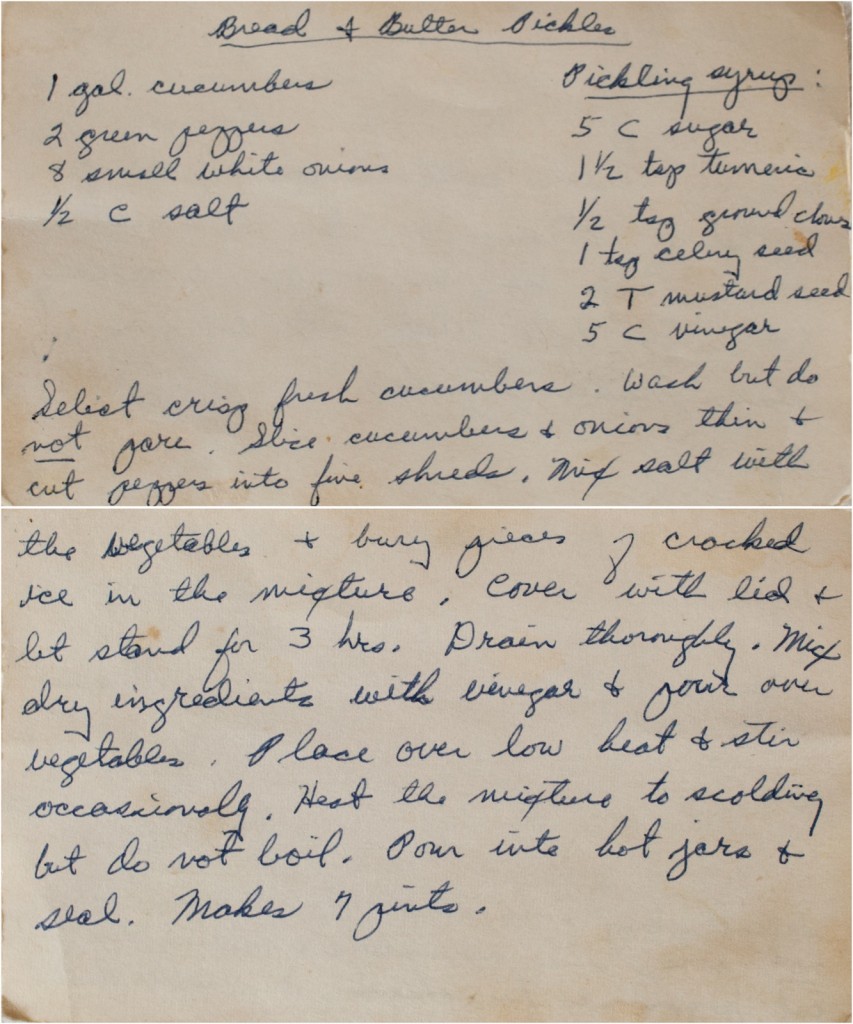 Bread & Butter Pickles
1 gal. cucumbers
2 green peppers
8 small white onions
1/2 C salt
Pickling syrup:
5 C sugar
1 1/2 tsp tumeric
1/2 tsp ground cloves
1 tsp celery seed
2 T mustard seed
5 C vinegar
Select crisp fresh cucumbers. Wash but do
not pare. Slice cucumbers & onions thin &
cut peppers into fine shreds. Mix salt with
the vegetables & bury pieces of cracked
ice in the mixture. Cover with lid &
let stand for 3 hrs. Drain thoroughly. Mix
dry ingredients with vinegar & pour over
vegetables. Place over low heat & stir
occasionally. Heat the mixture to scalding
but do not boil. Pour into hot jars &
seal. Makes 7 pints.